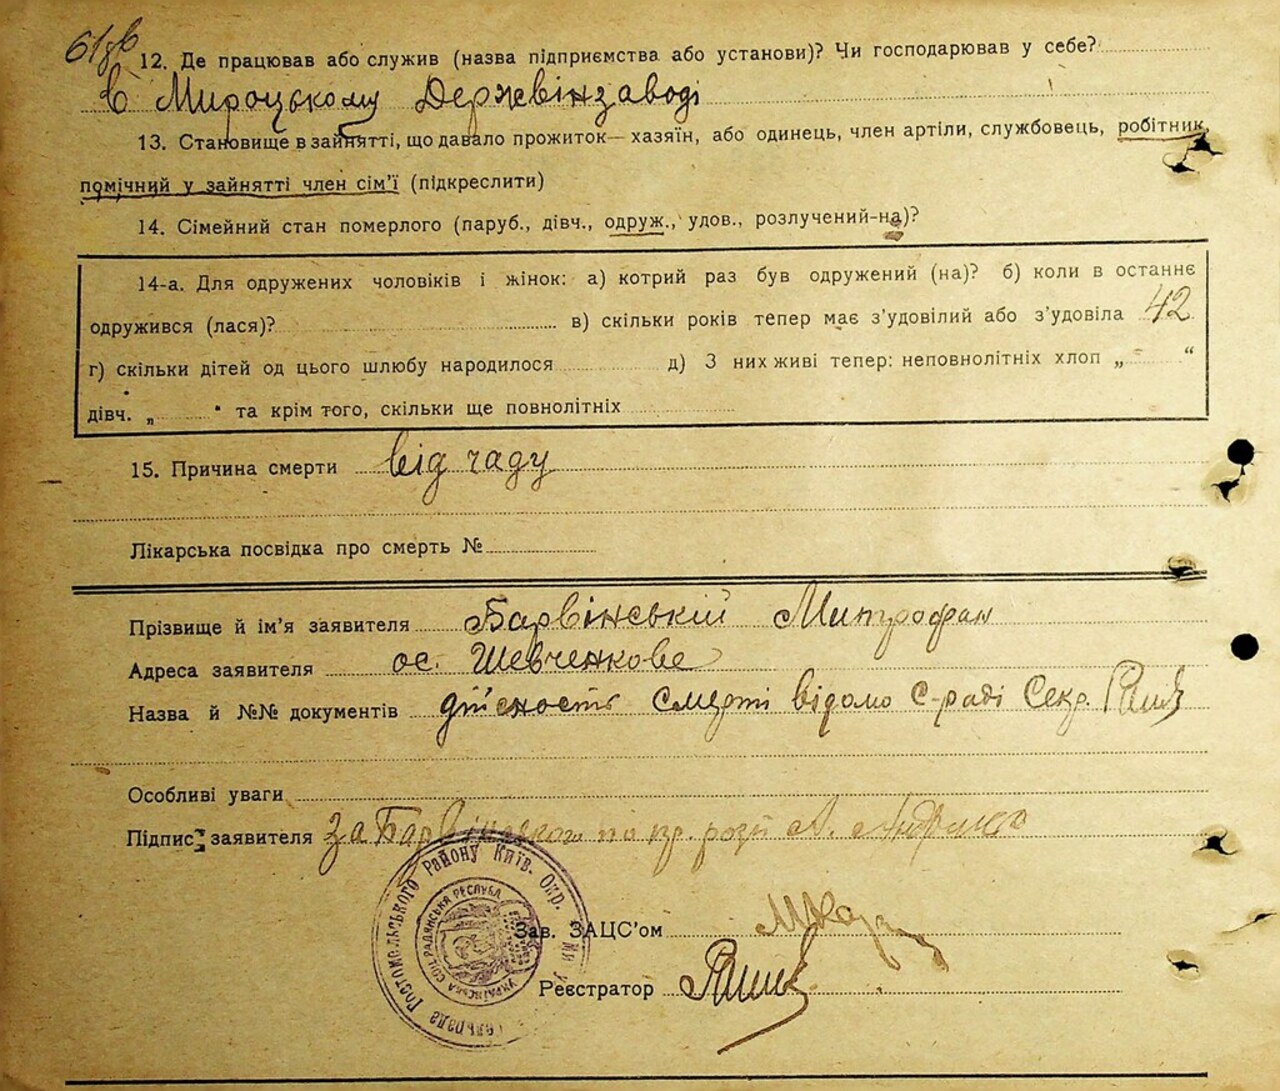 12. Де працював або служив (назва підприємства або установи)? Чи господарював у себе?
в Мироцькому Держвінзаводі
13. Становище в зайнятті, що давало прожиток — хазяїн, або одинець, член артілі, службовець, робітник,
помічний у зайнятті член сім'ї (підкреслити)
14. Сімейний стан померлого (паруб., дівч., одруж., удов., розлучений-на)?
14-а. Для одружених чоловіків і жінок: а) котрий раз був одружений (на)? б) коли в останнє
одружився (лася)? в) скільки років тепер має з'удовілий або з'удовіла 42
г) скільки дітей од цього шлюбу народилося д) З них живі тепер: неповнолітніх хлоп „ “
дівч. „ “ та крім того, скільки ще повнолітніх
15. Причина смерти від чаду
Лікарська посвідка про смерть №
Прізвище й ім'я заявителя Барвінській Митрофан
Адреса заявителя ос. Шевченкове
Назва й №№ документів дійсность смерті відомо с-раді Секр.
Особливі уваги
Підпис заявителя за Барвінського
Зав. ЗАЦС'ом
Реєстратор
Гостомельського Району Київ. Окр.
Українська Соц. Радянська Республ.